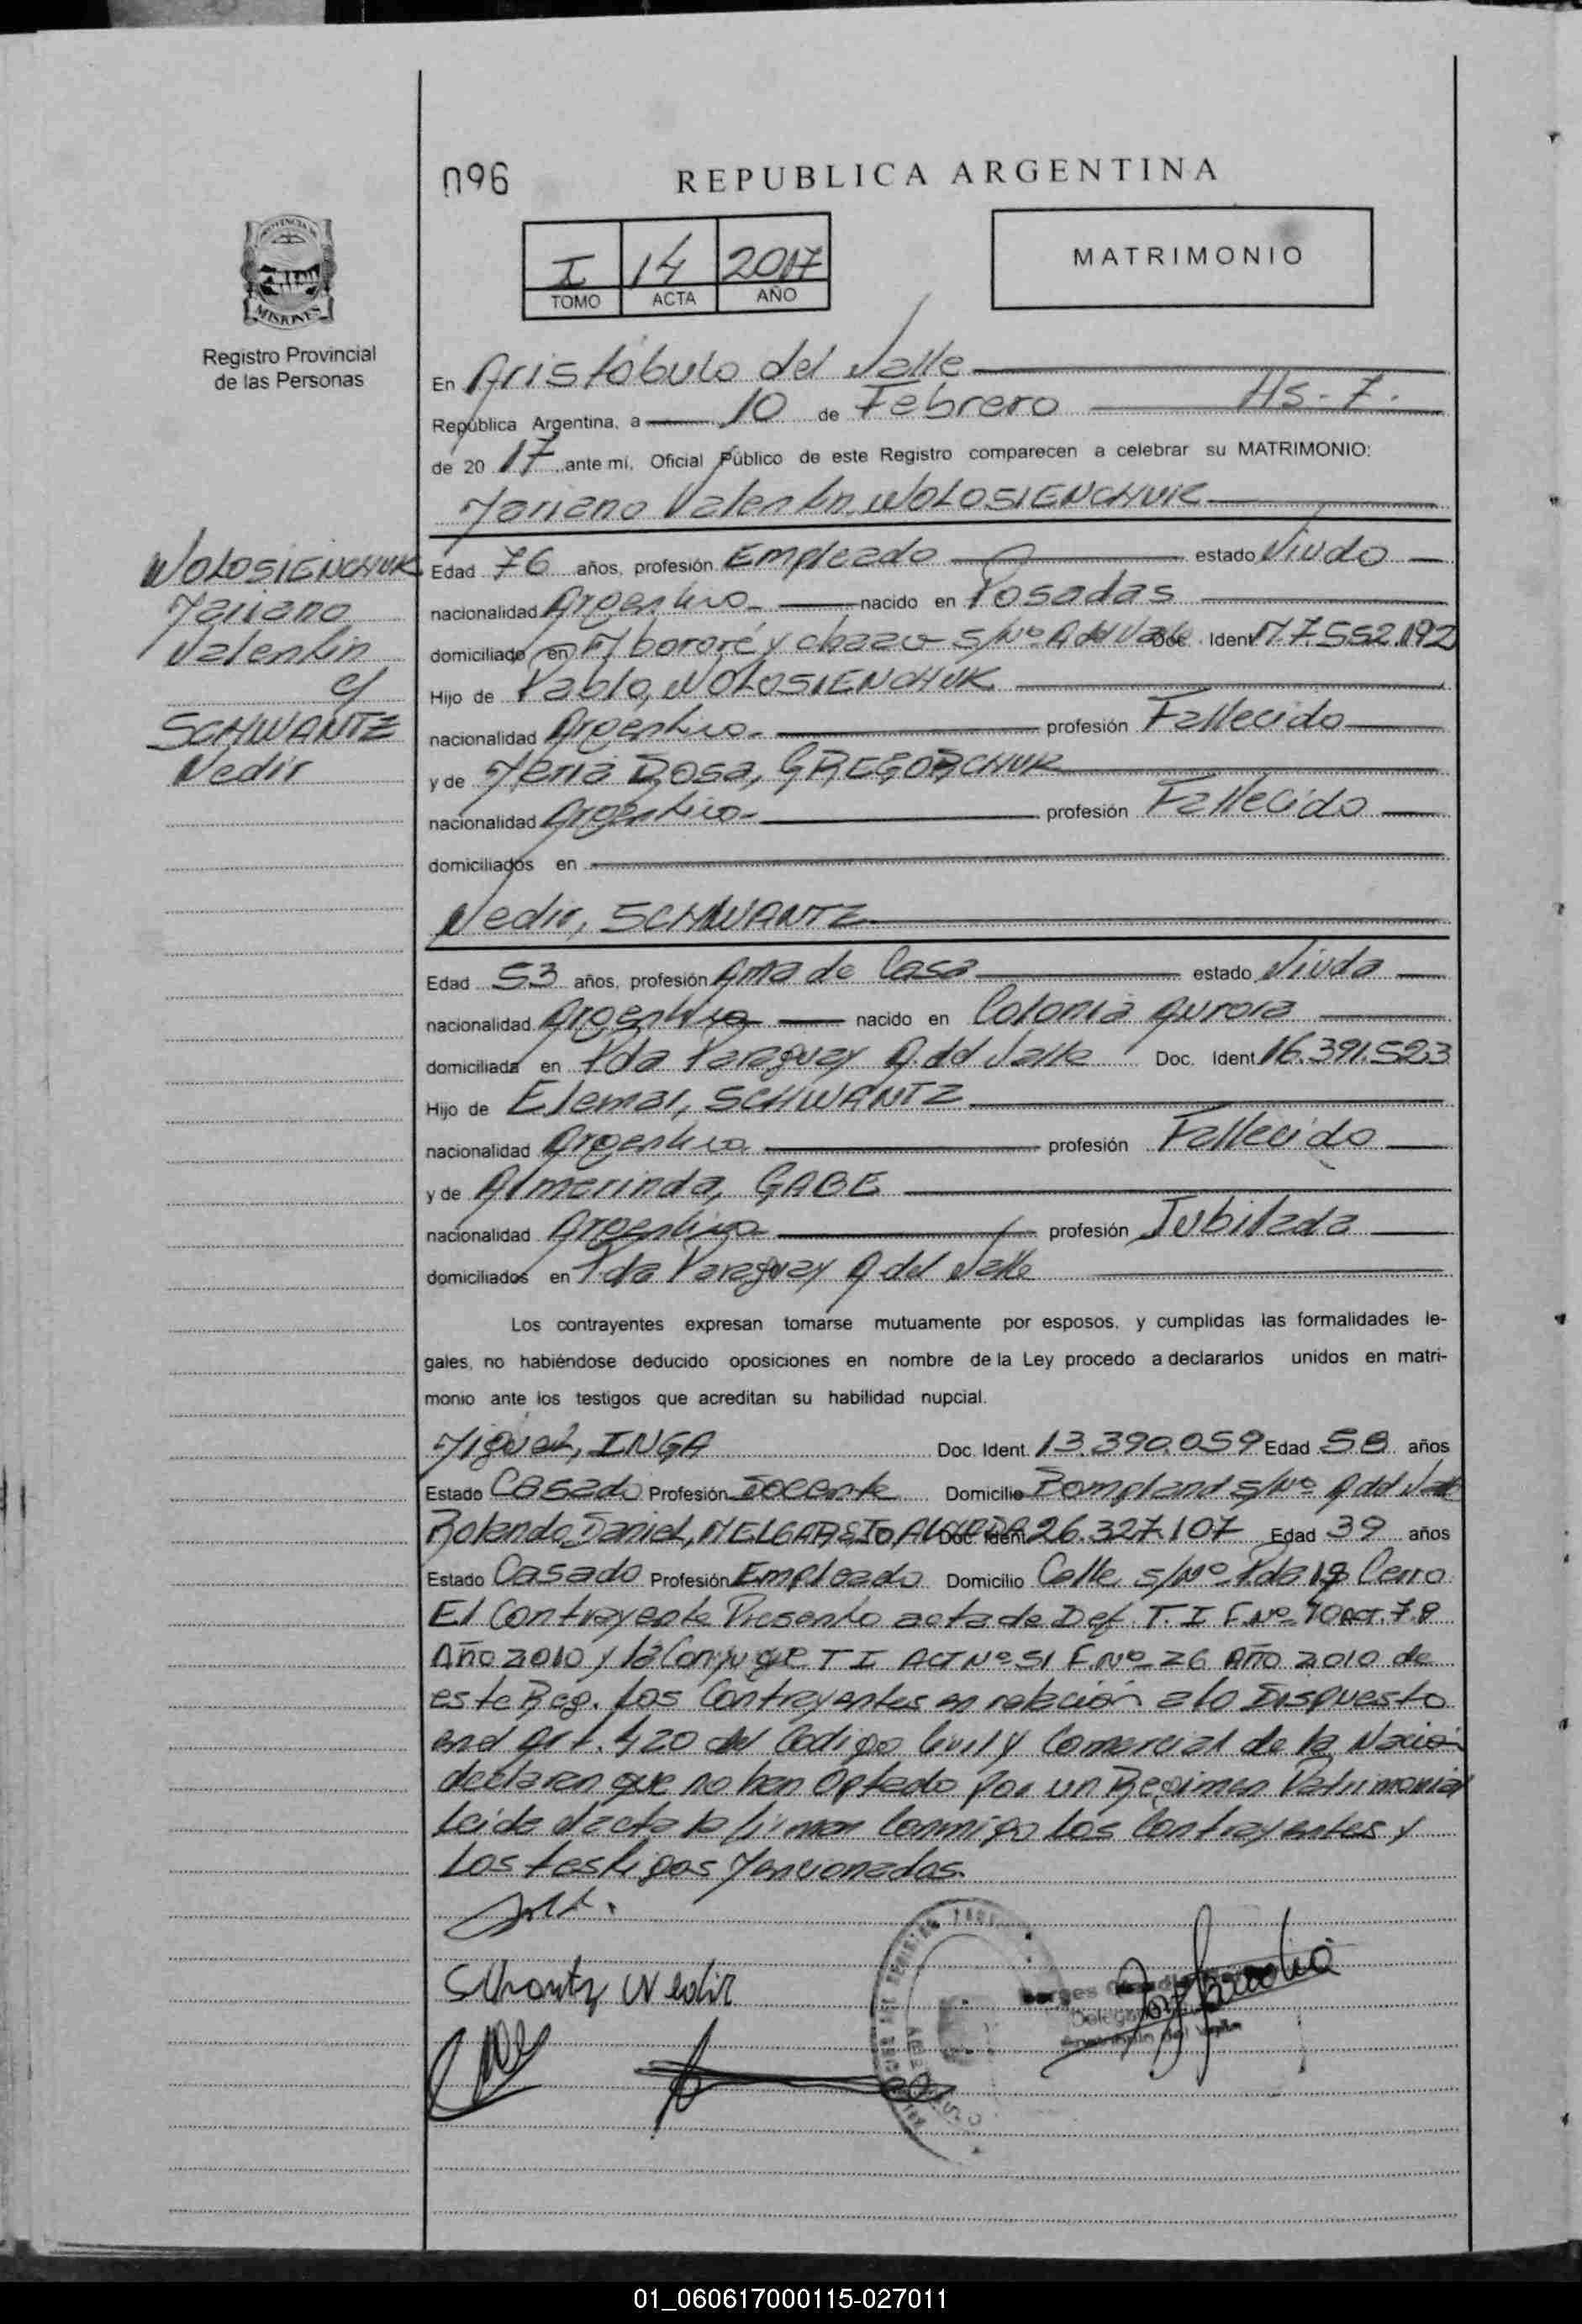 096
REPUBLICA ARGENTINA
PROVINCIA DE
MISIONES
Registro Provincial
de las Personas
I 14 2017
TOMO ACTA AÑO
MATRIMONIO
En Aristóbulo del Valle
República Argentina, a 10 de Febrero Hs - 7.
de 20 17 ante mí, Oficial Público de este Registro comparecen a celebrar su MATRIMONIO:
Mariano Valentin, WOLOSIENCHUK
WOLOSIENCHUK
Mariano
Valentin
c/
SCHWANTZ
Nedir
Edad 76 años, profesión Empleado estado Viudo
nacionalidad Argentino nacido en Posadas
domiciliado en Mbororé y chazo S/Nº A del Valle Doc. Ident M 7.552.192
Hijo de Pablo, WOLOSIENCHUK
nacionalidad Argentino profesión Fallecido
y de Maria Rosa, GREGORCHUK
nacionalidad Argentino profesión Fallecido
domiciliados en
Nedir, SCHWANTZ
Edad 53 años, profesión Ama de Casa estado Viuda
nacionalidad Argentina nacido en Colonia Aurora
domiciliada en Pda Paraguay A. del Valle Doc. Ident 16.391.523
Hijo de Elemar, SCHWANTZ
nacionalidad Argentina profesión Fallecido
y de Almerinda, GABE
nacionalidad Argentina profesión Jubilada
domiciliados en Pda Paraguay A del Valle
Los contrayentes expresan tomarse mutuamente por esposos, y cumplidas las formalidades le-
gales, no habiéndose deducido oposiciones en nombre de la Ley procedo a declararlos unidos en matri-
monio ante los testigos que acreditan su habilidad nupcial.
Miguel, INGA Doc. Ident. 13.390.059 Edad 58 años
Estado Casado Profesión Docente Domicilio Bompland S/Nº A del Valle
Rolando Daniel, MELGAREJO Doc. Ident. 26.327.107 Edad 39 años
Estado Casado Profesión Empleado Domicilio Calle S/Nº Pda 19 Cerro
El Contrayente Presento acta de Def. T. I F.Nº 40 Act. 79
Año 2010 y la Conyuge T I ACT Nº 51 F.Nº 26 Año 2010 de
este Reg. Los Contrayentes en relación a lo Dispuesto
en el Art. 420 del Codigo Civil y Comercial de la Nació
declaran que no han Optado por un Regimen Patrimonial
Leida el acta la firman Conmigo los Contrayentes y
Los testigos Mencionados.
Schantz Nedir
Delegada
Aristóbulo del Valle
01_060617000115-027011